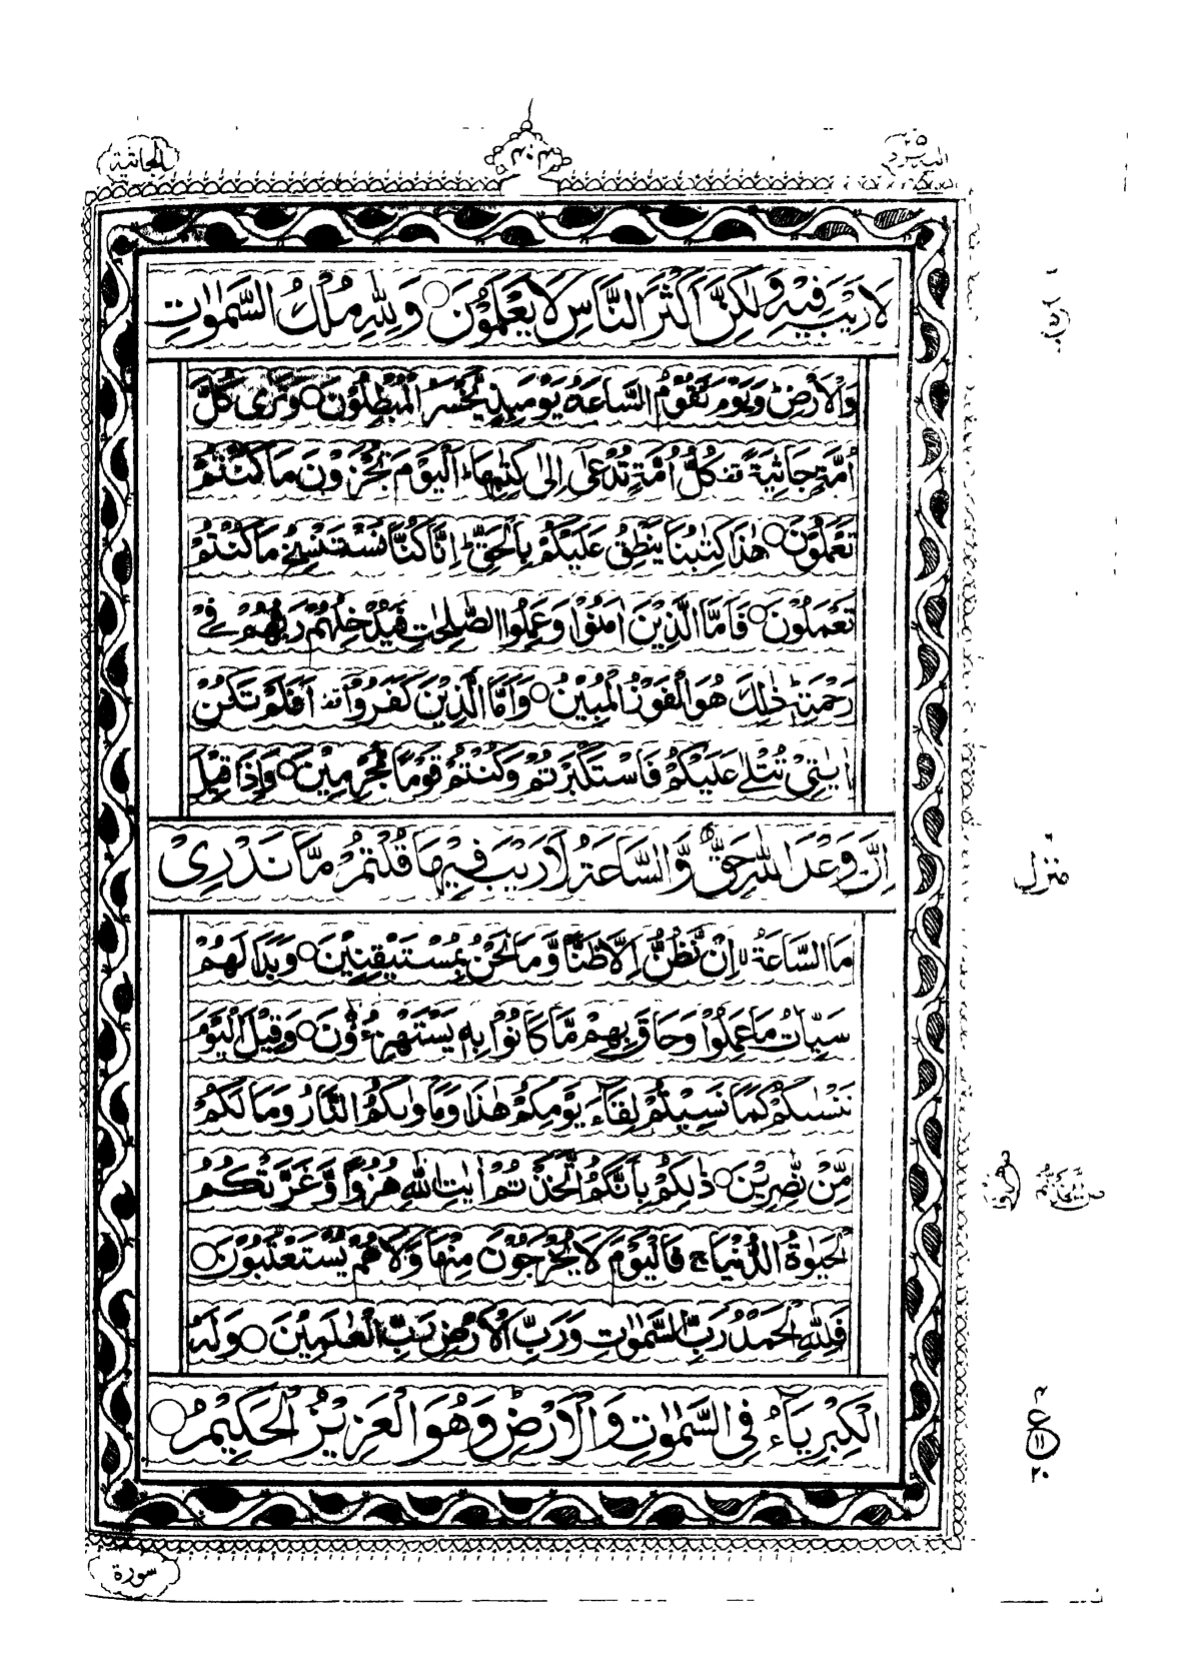 الجاثية
٢٥
لَا رَيْبَ فِيْهِ وَلٰكِنَّ اَكْثَرَ النَّاسِ لَا يَعْلَمُوْنَ ○ وَلِلّٰهِ مُلْكُ السَّمٰوٰتِ
وَالْاَرْضِ ؕ وَيَوْمَ تَقُوْمُ السَّاعَةُ يَوْمَئِذٍ يَّخْسَرُ الْمُبْطِلُوْنَ ○ وَتَرٰى كُلَّ
اُمَّةٍ جَاثِيَةً ۟ كُلُّ اُمَّةٍ تُدْعٰۤى اِلٰى كِتٰبِهَا ؕ اَلْيَوْمَ تُجْزَوْنَ مَا كُنْتُمْ
تَعْمَلُوْنَ ○ هٰذَا كِتٰبُنَا يَنْطِقُ عَلَيْكُمْ بِالْحَقِّ ؕ اِنَّا كُنَّا نَسْتَنْسِخُ مَا كُنْتُمْ
تَعْمَلُوْنَ ○ فَاَمَّا الَّذِيْنَ اٰمَنُوْا وَعَمِلُوا الصّٰلِحٰتِ فَيُدْخِلُهُمْ رَبُّهُمْ فِيْ
رَحْمَتِهٖ ؕ ذٰلِكَ هُوَ الْفَوْزُ الْمُبِيْنُ ○ وَاَمَّا الَّذِيْنَ كَفَرُوْا ۟ اَفَلَمْ تَكُنْ
اٰيٰتِيْ تُتْلٰى عَلَيْكُمْ فَاسْتَكْبَرْتُمْ وَكُنْتُمْ قَوْمًا مُّجْرِمِيْنَ ○ وَاِذَا قِيْلَ
اِنَّ وَعْدَ اللّٰهِ حَقٌّ وَّالسَّاعَةُ لَا رَيْبَ فِيْهَا قُلْتُمْ مَّا نَدْرِيْ
مَا السَّاعَةُ ۙ اِنْ نَّظُنُّ اِلَّا ظَنًّا وَّمَا نَحْنُ بِمُسْتَيْقِنِيْنَ ○ وَبَدَا لَهُمْ
سَيِّاٰتُ مَا عَمِلُوْا وَحَاقَ بِهِمْ مَّا كَانُوْا بِهٖ يَسْتَهْزِءُوْنَ ○ وَقِيْلَ الْيَوْمَ
نَنْسٰىكُمْ كَمَا نَسِيْتُمْ لِقَآءَ يَوْمِكُمْ هٰذَا وَمَاْوٰىكُمُ النَّارُ وَمَا لَكُمْ
مِّنْ نّٰصِرِيْنَ ○ ذٰلِكُمْ بِاَنَّكُمُ اتَّخَذْتُمْ اٰيٰتِ اللّٰهِ هُزُوًا وَّغَرَّتْكُمُ
الْحَيٰوةُ الدُّنْيَا ۚ فَالْيَوْمَ لَا يُخْرَجُوْنَ مِنْهَا وَلَا هُمْ يُسْتَعْتَبُوْنَ ○
فَلِلّٰهِ الْحَمْدُ رَبِّ السَّمٰوٰتِ وَرَبِّ الْاَرْضِ رَبِّ الْعٰلَمِيْنَ ○ وَلَهُ
الْكِبْرِيَآءُ فِى السَّمٰوٰتِ وَالْاَرْضِ ۪ وَهُوَ الْعَزِيْزُ الْحَكِيْمُ ○
منزل
ع
١١
٢٠
سورة